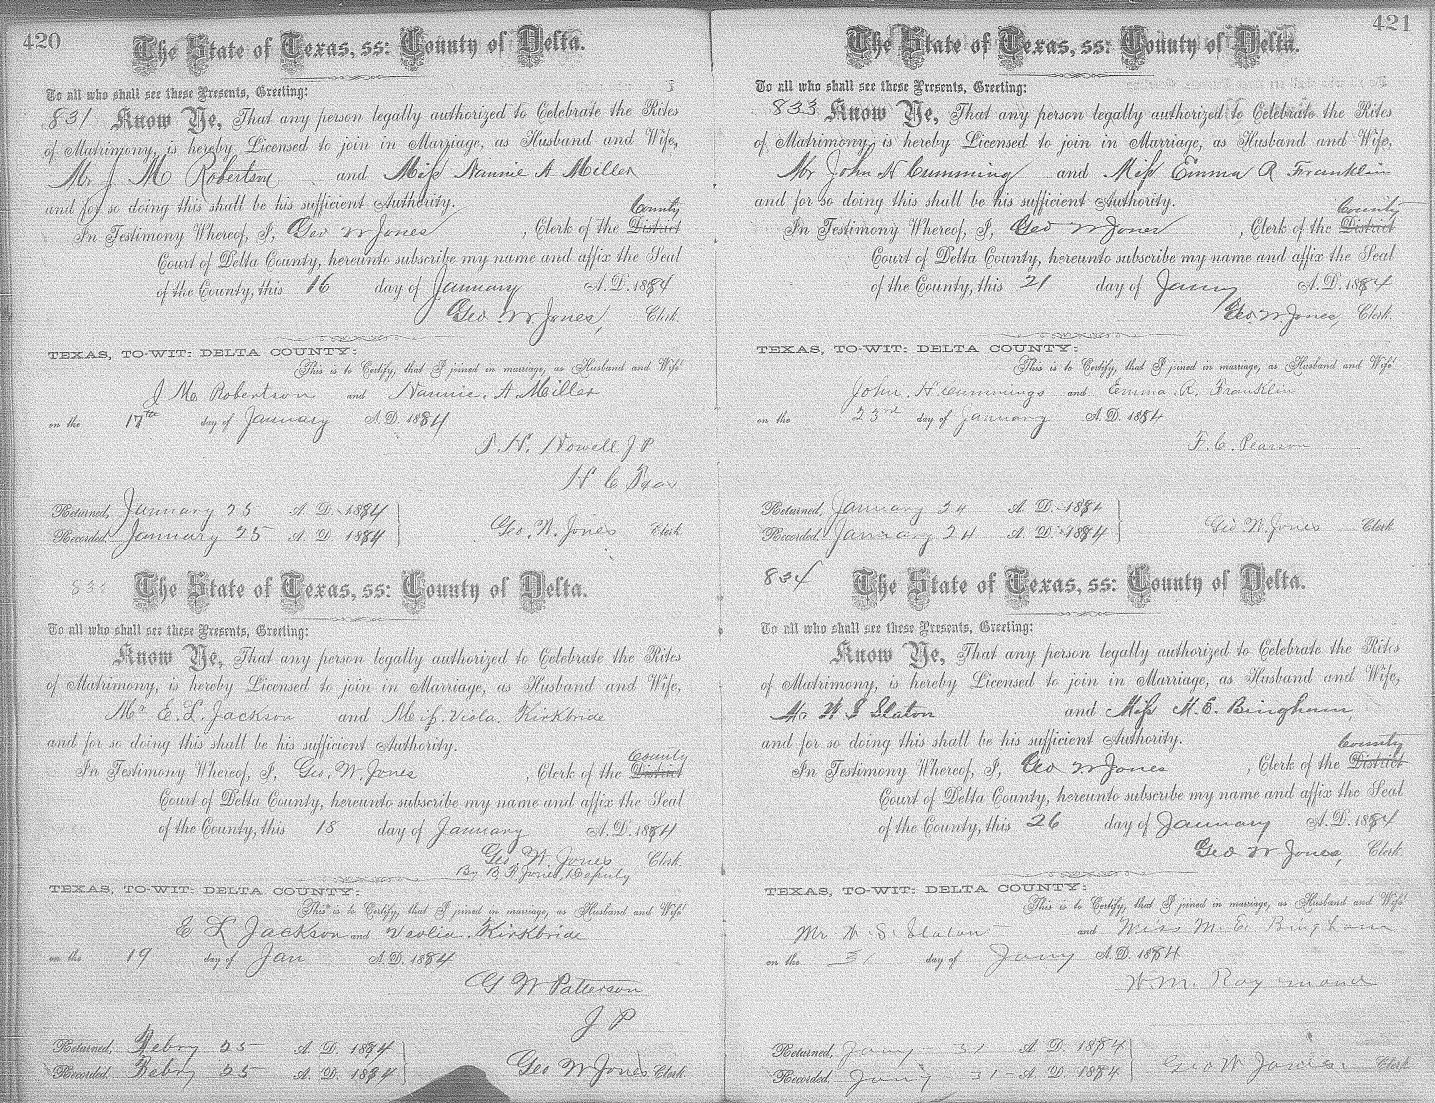 420
The State of Texas, ss: County of Delta.
To all who shall see these Presents, Greeting:
831 Know Ye, That any person legally authorized to Celebrate the Rites
of Matrimony, is hereby Licensed to join in Marriage, as Husband and Wife,
Mr J M Robertson and Miss Nannie A Miller
and for so doing this shall be his sufficient Authority.
County
In Testimony Whereof, I, Geo W Jones, Clerk of the District
Court of Delta County, hereunto subscribe my name and affix the Seal
of the County, this 16 day of January A. D. 1884
Geo W Jones, Clerk.
TEXAS, TO-WIT: DELTA COUNTY:
This is to Certify, that I joined in marriage, as Husband and Wife
J M Robertson and Nannie. A. Miller
on the 17th day of January A. D. 1884
P. H. Nowell J P
H C
Returned, January 25 A. D. 1884
Recorded, January 25 A. D. 1884 Geo. W. Jones Clerk
The State of Texas, ss: County of Delta.
To all who shall see these Presents, Greeting:
Know Ye, That any person legally authorized to Celebrate the Rites
of Matrimony, is hereby Licensed to join in Marriage, as Husband and Wife,
Mr E. L. Jackson and Miss. Viola. Kirkbride
and for so doing this shall be his sufficient Authority.
County
In Testimony Whereof, I, Geo. W. Jones, Clerk of the District
Court of Delta County, hereunto subscribe my name and affix the Seal
of the County, this 18 day of January A. D. 1884
Geo. W. Jones Clerk.
By B. F. Jones, Deputy
TEXAS, TO-WIT: DELTA COUNTY:
This is to Certify, that I joined in marriage, as Husband and Wife
E L Jackson and Veolia. Kirkbride
on the 19 day of Jan A. D. 1884
G W Patterson
J P
Returned, Febry 25 A. D. 1884
Recorded. Febry 25 A. D. 1884 Geo W Jones Clerk
421
The State of Texas, ss: County of Delta.
To all who shall see these Presents, Greeting:
833 Know Ye, That any person legally authorized to Celebrate the Rites
of Matrimony, is hereby Licensed to join in Marriage, as Husband and Wife,
Mr John H Cumming and Miss Emma R Franklin
and for so doing this shall be his sufficient Authority.
County
In Testimony Whereof, I, Geo W Jones, Clerk of the District
Court of Delta County, hereunto subscribe my name and affix the Seal
of the County, this 21 day of Jany A. D. 1884
Geo W Jones, Clerk.
TEXAS, TO-WIT: DELTA COUNTY:
This is to Certify, that I joined in marriage, as Husband and Wife
John. H Cummings and Emma. R. Franklin
on the 23rd day of January A. D. 1884
F. C. Pearson
Returned, January 24 A. D. 1884
Recorded. January 24 A. D. 1884 Geo W. Jones Clerk
834 The State of Texas, ss: County of Delta.
To all who shall see these Presents, Greeting:
Know Ye, That any person legally authorized to Celebrate the Rites
of Matrimony, is hereby Licensed to join in Marriage, as Husband and Wife,
Mr W S Slaton and Miss M. E. Bingham
and for so doing this shall be his sufficient Authority.
County
In Testimony Whereof, I, Geo W Jones, Clerk of the District
Court of Delta County, hereunto subscribe my name and affix the Seal
of the County, this 26 day of January A. D. 1884
Geo W Jones, Clerk.
TEXAS, TO-WIT: DELTA COUNTY:
This is to Certify, that I joined in marriage, as Husband and Wife
Mr W. S. Slaton and Miss M. E Bingham
on the 31 day of Jany A. D. 1884
W. M. Raymond
Returned, Jany 31 A. D. 1884
Recorded. Jany 31 A. D. 1884 Geo W Jones. Clerk